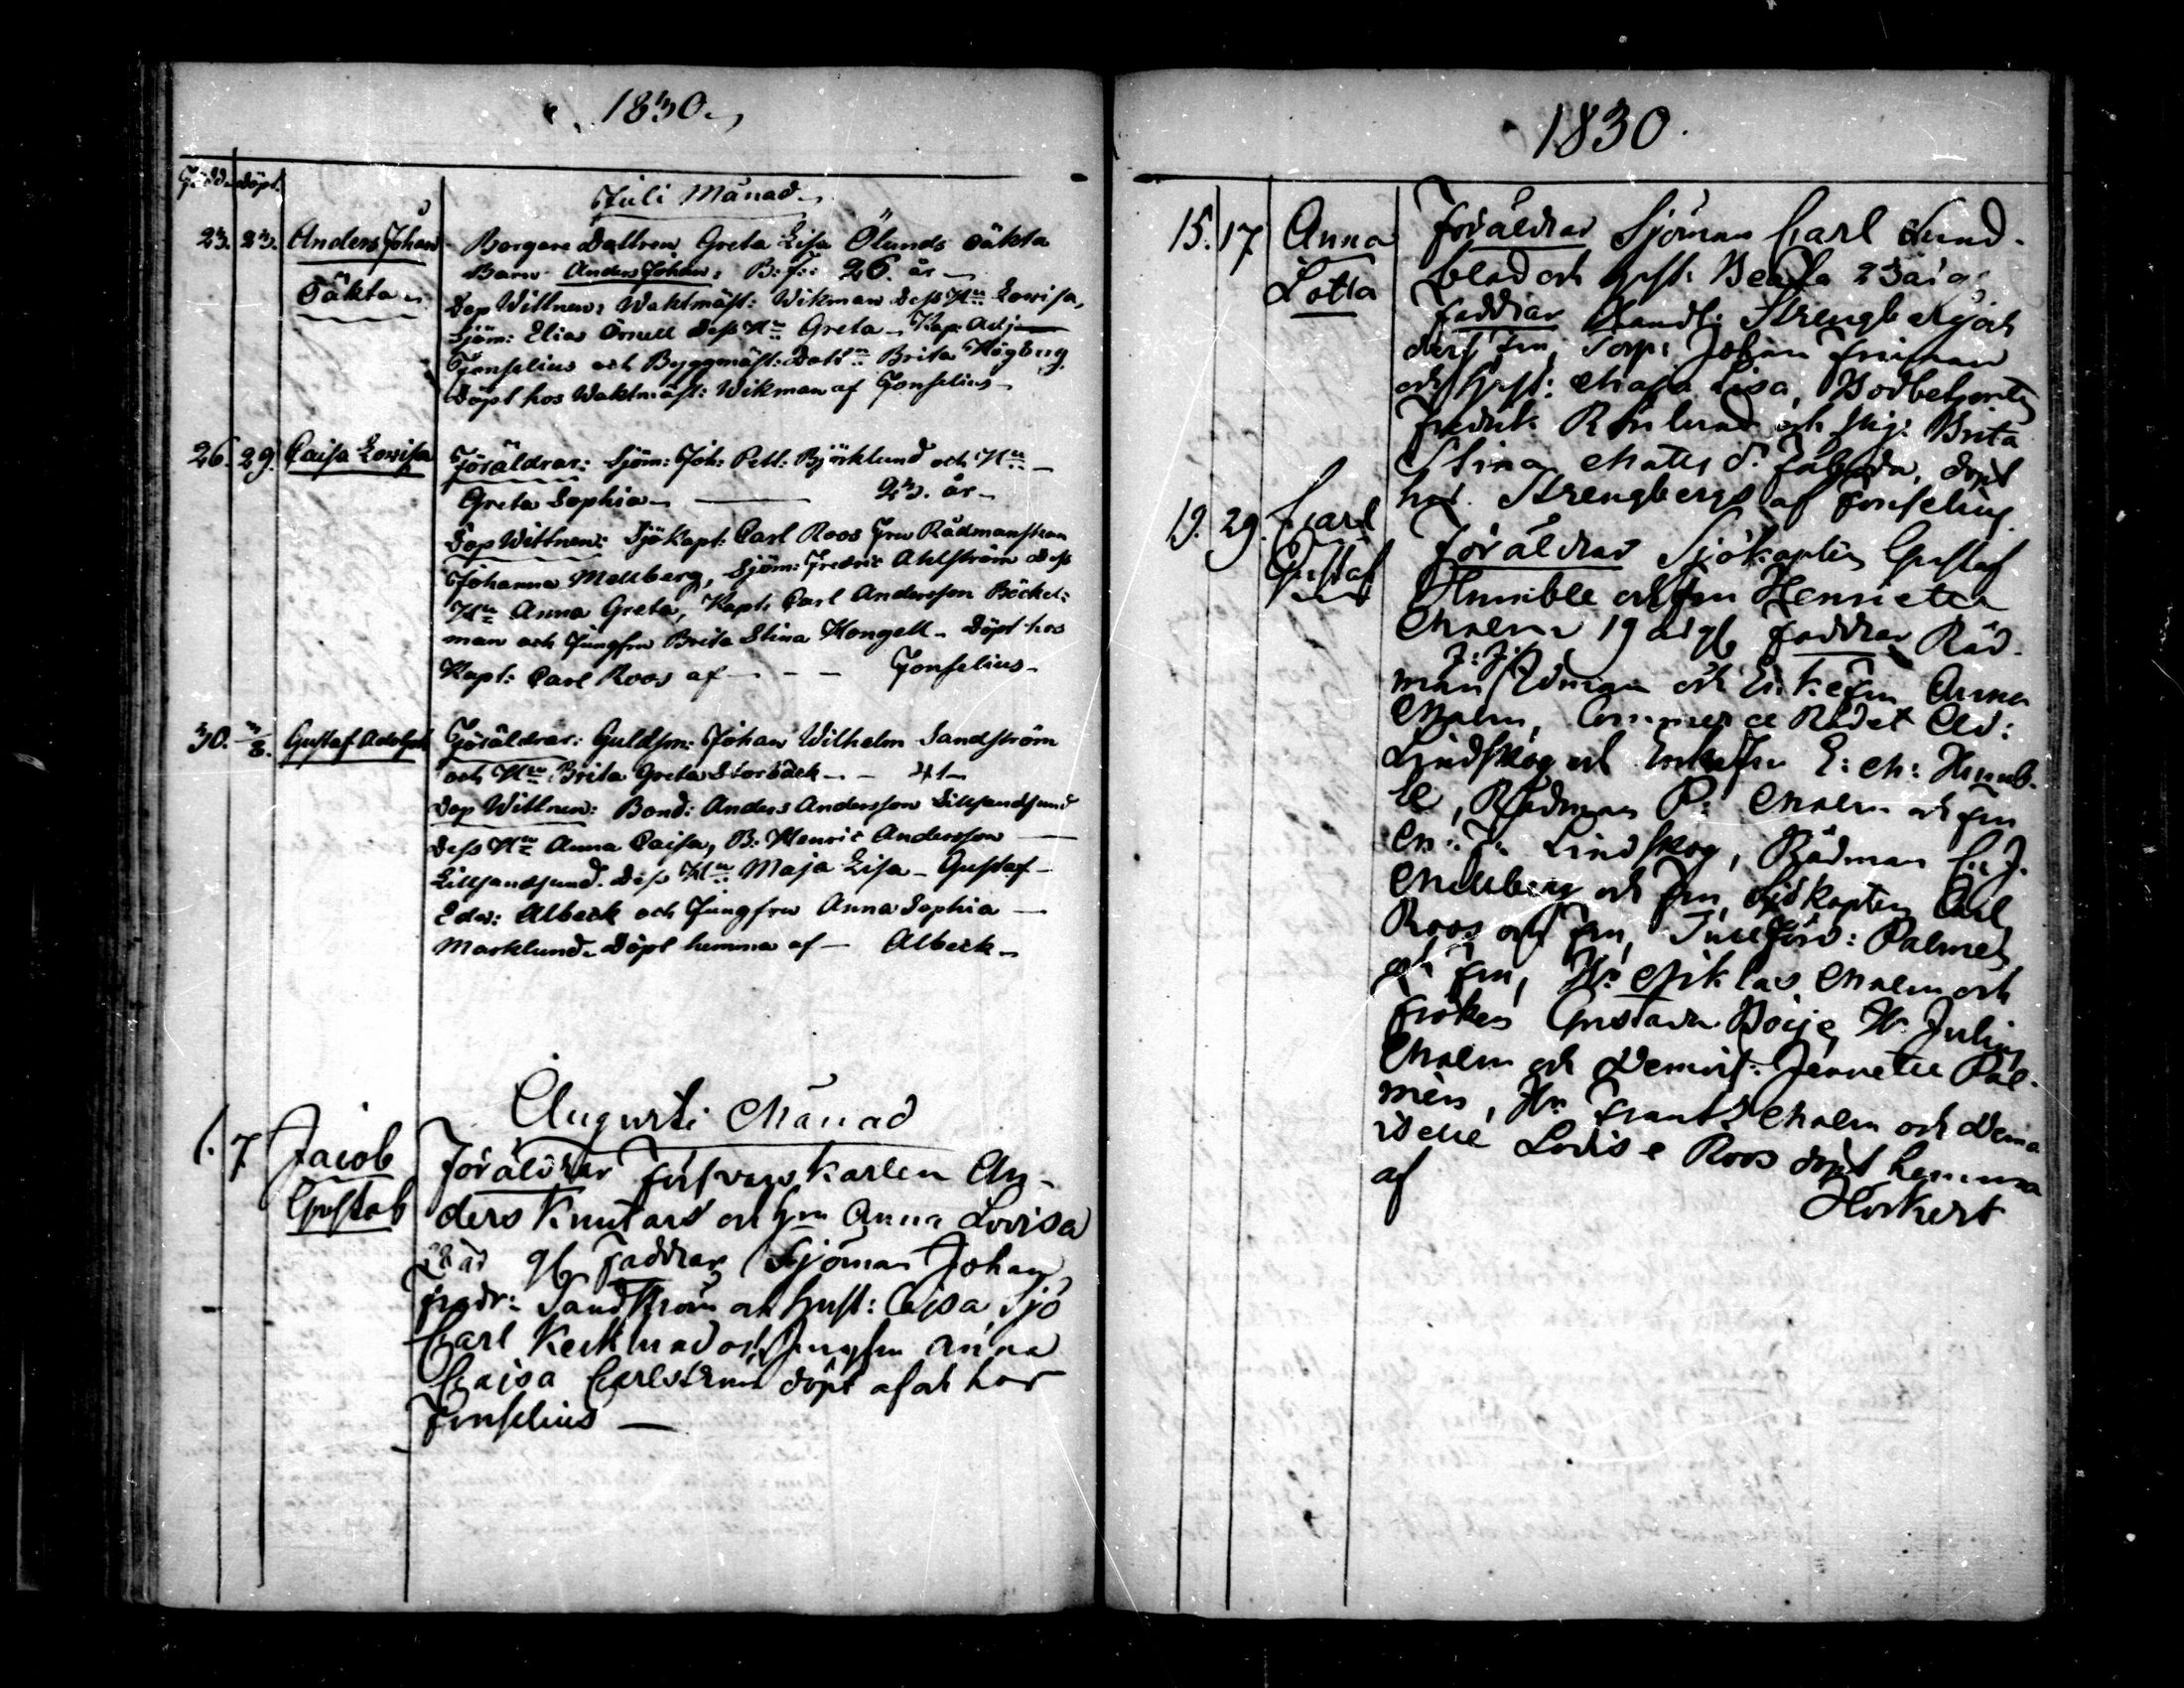 1830.
Född. döpt.
Juli Månad.
23. 23. Anders Johan Borgare Dottren Greta Lisa Ölunds oäkta
Oäkta Barn Anders Johan: B: f:: 26. år
Dop Wittnen: Waktmäst: Wikman Dess Hu Lovisa,
Sjöm: Elias Dess Hu Greta Kap: Adj
Fonselius och Byggmäst: Dottn Brita Högberg
döpt hos Waktmäst: Wikman af Fonselius
26. 29. Caisa Lovisa Föräldrar: Sjöm: Joh: Pett: Björklund och Hu
Greta Sophia 23. år
Dop Wittnen: Sjö Kapt: Carl Roos Fru Rådmanskan
Johanna Mellberg, Sjöm: Fredric Ahlström dess
Hu Anna Greta, Kapt: Carl Andersson Böckel:
man och Jungfru Brita Stina Kongell. Döpt hos
Kapt: Carl Roos af Fonselius
30. 3/8. Gustaf Adolph Föräldrar: Guldsm: Johan Wilhelm Sandström
och Hu Brita Greta Storbäck 41
Dop Wittnen: Bond: Anders Andersson Lillsandsund
Dess Hu Anna Caisa, B: Henric Andersson
Lillsandsund. Dess Hu Maja Lisa Gustaf
Edv: Albeck och Jungfru Anna Sophia
Marklund. Döpt hemma af Albeck
Augusti Månad
1. 7 Jacob Föräldrar Försvars Karlen An-
Gustaf ders Knutars och hu Anna Lovisa
28 år Faddrar Sjöman Johan
Fredr: Sandström och hust: Cajsa, Sjö
Carl Kecklund och Jungfru Anna
Cajsa Carlström döpt af och hos
Fonselius
1830.
15. 17 Anna Föräldrar Sjöman Carl Sund-
Lotta blad och hust: Beata 23 år g:
Faddrar Handl: Strengberg och
dess fru, Torp: Johan Friman
och hust: Maja Lisa, Bodbetjenten
Fredrik Rönlund och pig: Brita
Stina Mats d: döpt
hos Strengbergs af Fonselius.
19. 29. Carl Föräldrar Sjökapten Gustaf
Gustaf Humble och fru Henrietta
Malm 19 år Faddrar Råd-
J: J:
man och Enkefru Anna
Malm, Commerce Rådet And:
Lindskog och Enkefru E: M: Humb-
le, Rådman P: Malm och fru
M: Lindskog, Rådman C: J.
Mellberg och fru, Sjökapten Carl
Roos och fru, Tullförv: Palmén
och fru, Hr Niklas Malm och
fröken Gustava Boije, Hr Julius
Malm och Demois: Jeanette Pal-
mén, Hr Frants Malm och Demo
iselle Lovise Roos döpt hemma
af
Horkert